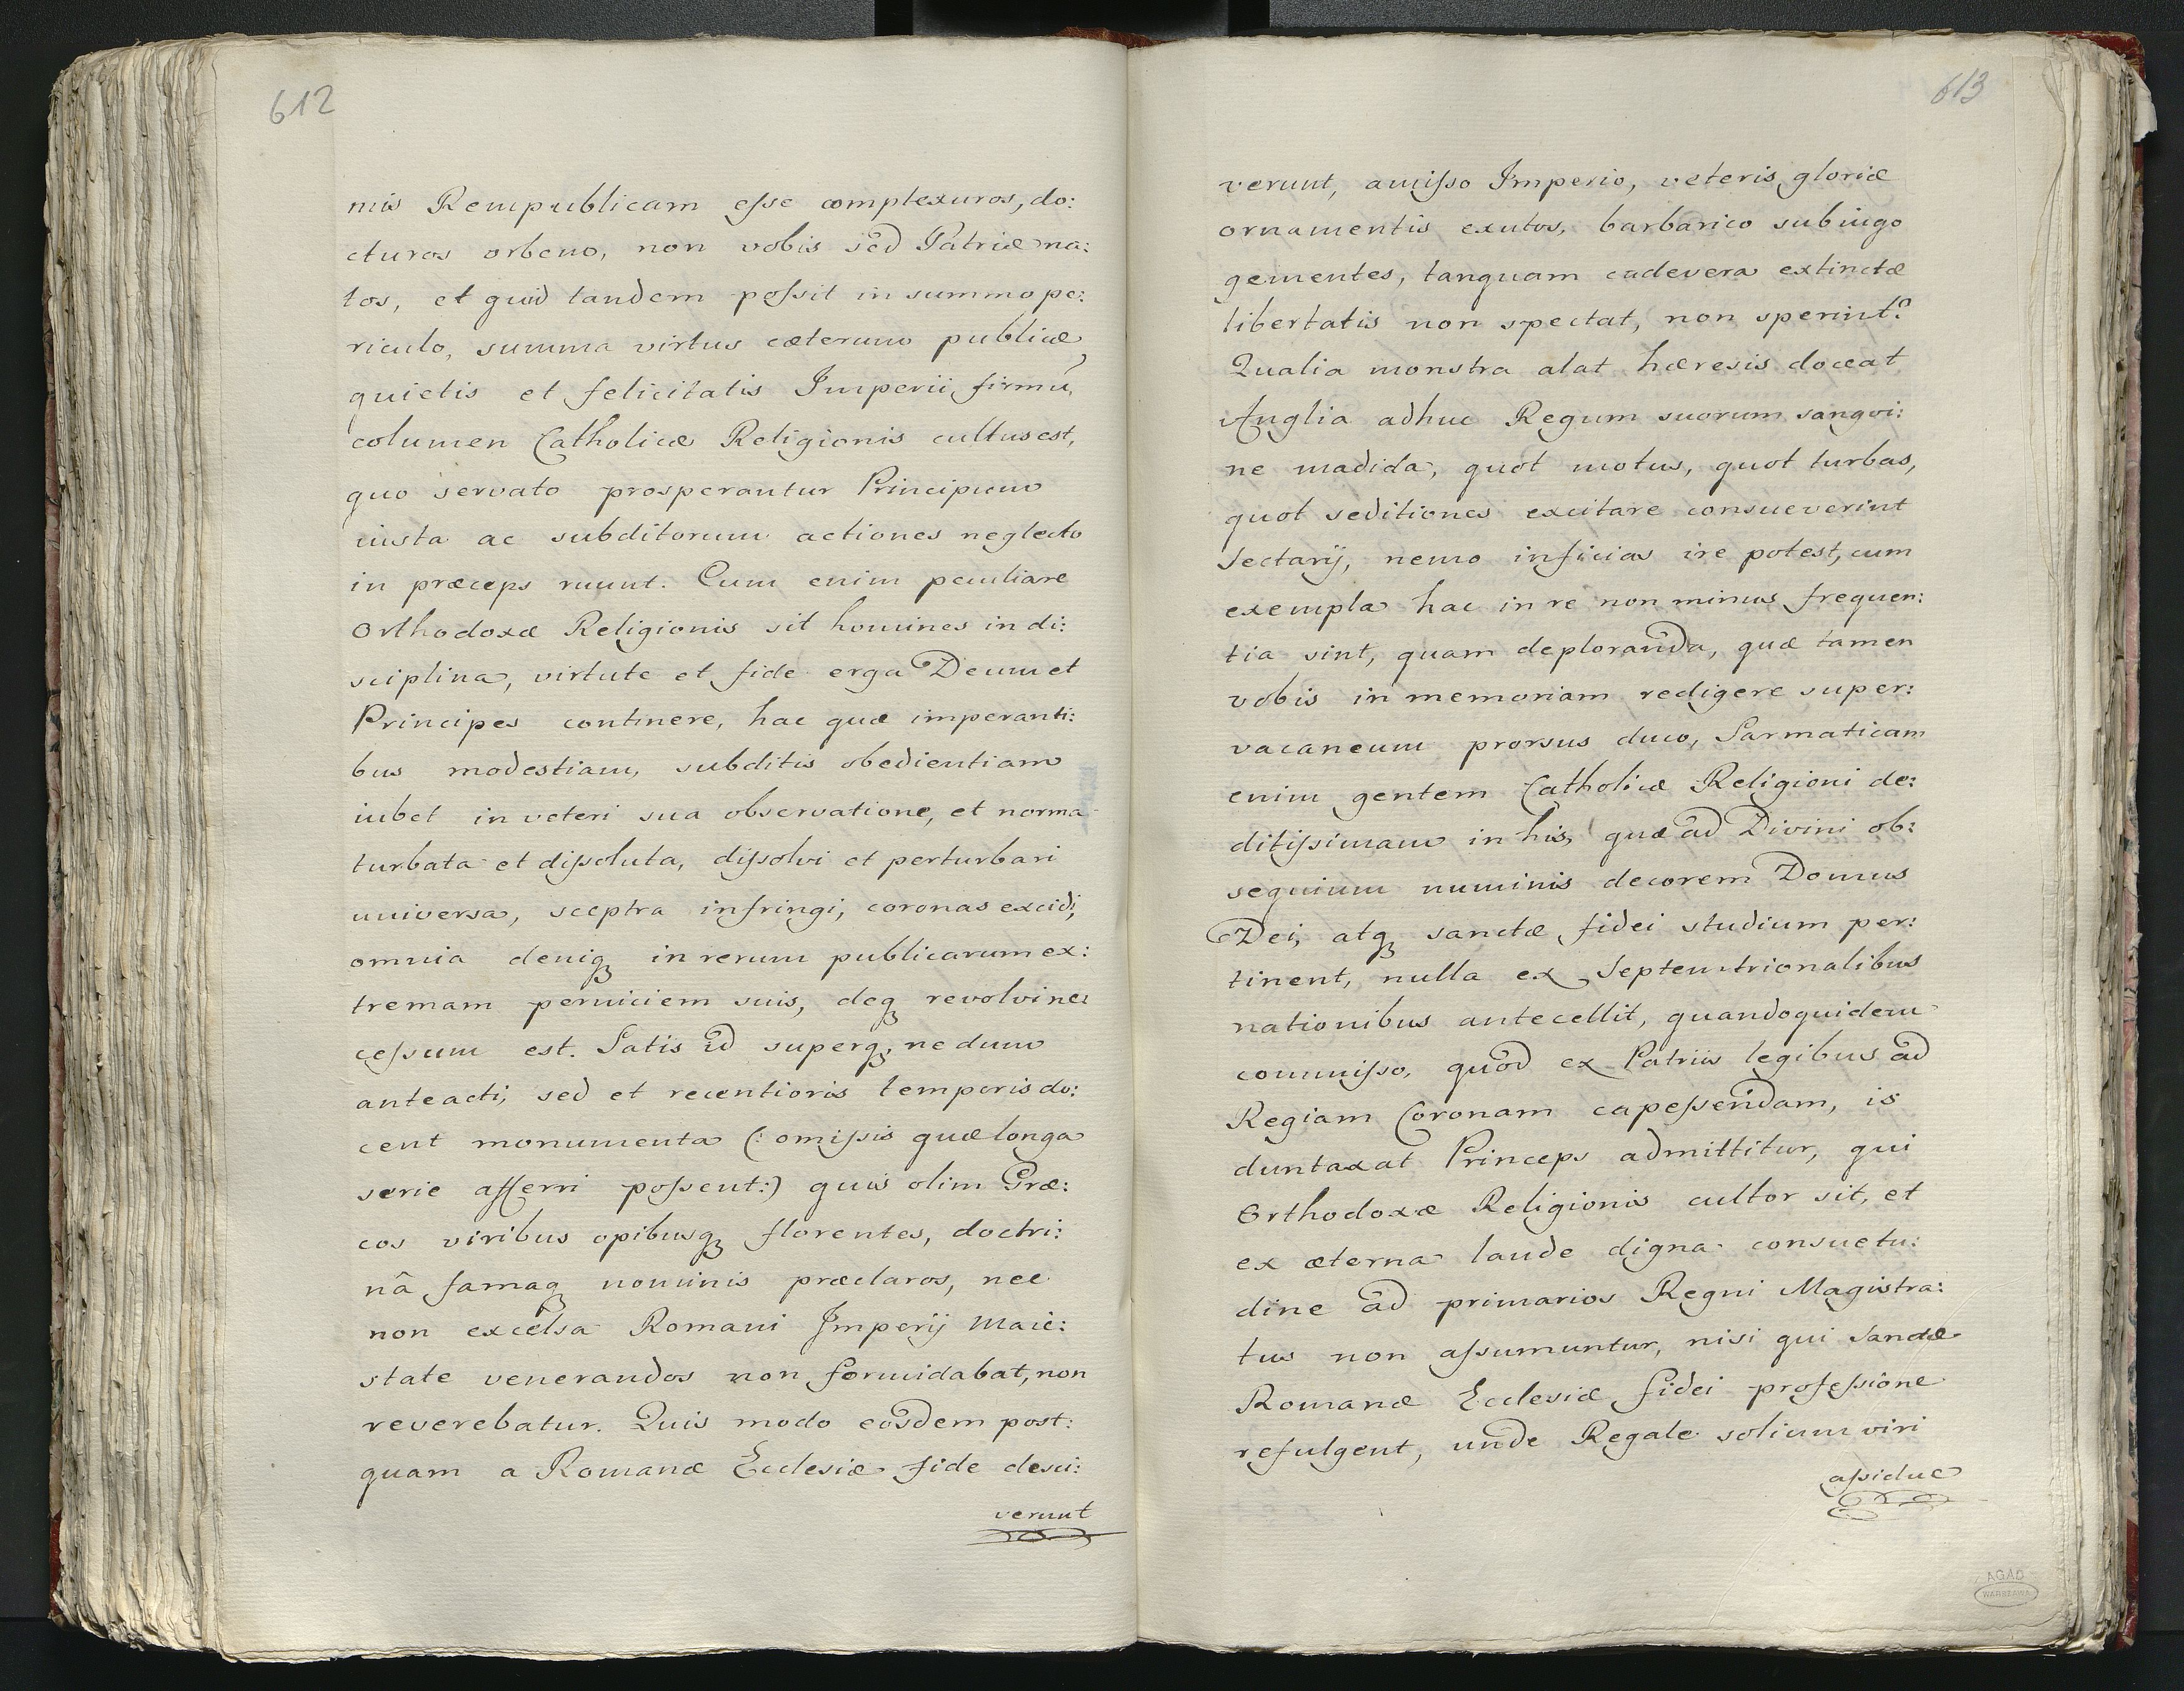 612
nis Rempublicam eſse complexuros, do:
cturos orbem, non vobis sed Patriæ na:
tos, et quid tandem poſsit in summo pe:
riculo, summa virtus cæterum publicæ
quietis et felicitatis Imperii firmũ,
columen Catholicæ Religionis cultus est,
quo servato prosperantur Principum
iusta ac subditorum actiones neglecto
in præceps ruunt. Cum enim peculiare
Orthodoxæ Religionis sit homines in di:
sciplina, virtute et fide erga Deum et
Principes continere, hac quæ imperanti:
bus modestiam, subditis obedientiam
iubet in veteri sua observatione, et norma
turbata et diſsoluta, diſsolvi et perturbari
universa, sceptra infringi, coronas excidi,
omnia deniqꝫ in rerum publicarum ex:
tremam perniciem suis, deqꝫ revolvi ne:
ceſsum est. Satis id superqꝫ, ne dum
anteacti, sed et recentioris temporis do:
cent monumenta (: omiſsis quæ longa
serie aſferri poſsent:) quis olim Græ:
cos viribus opibusqꝫ florentes, doctri:
nâ famaqꝫ nominis præclaros, nec
non excelsa Romani Imperij Maie:
state venerandos non formidabat, non
reverebatur. Quis modo eosdem post:
quam a Romanæ Ecclesiæ fide desci:
verunt
613
verunt, amiſso Imperio, veteris gloriæ
ornamentis exutos, barbarico sub iugo
gementes, tanquam cadevera extinctæ
libertatis non spectat, non spernit?
Qualia monstra alat hæresis doceat
Anglia adhuc Regum suorum sangvi:
ne madida, quot motus, quot turbas,
quot seditiones excitare consueverint
Sectarij, nemo inficias ire potest, cum
exempla hac in re non minus frequen:
tia sint, quam deploranda, quæ tamen
vobis in memoriam redigere super:
vacaneum prorsus duco, Sarmaticam
enim gentem Catholicæ Religioni de:
ditiſsimam in his, quæ ad Divini ob:
sequium numinis decorem Domus
Dei, atqꝫ sanctæ fidei studium per:
tinent, nulla ex Septemtrionalibus
nationibus antecellit, quandoquidem
commiſso, quod ex Patriis legibus ad
Regiam Coronam capeſsendam, is
duntaxat Princeps admittitur, qui
Orthodoxæ Religionis cultor sit, et
ex æterna laude digna consuetu:
dine ad primarios Regni Magistra:
tus non aſsumuntur, nisi qui Sanctæ
Romanæ Ecclesiæ fidei profeſsione
refulgent, unde Regale solium viri
aſsiduæ
AGAD
WARSZAWA